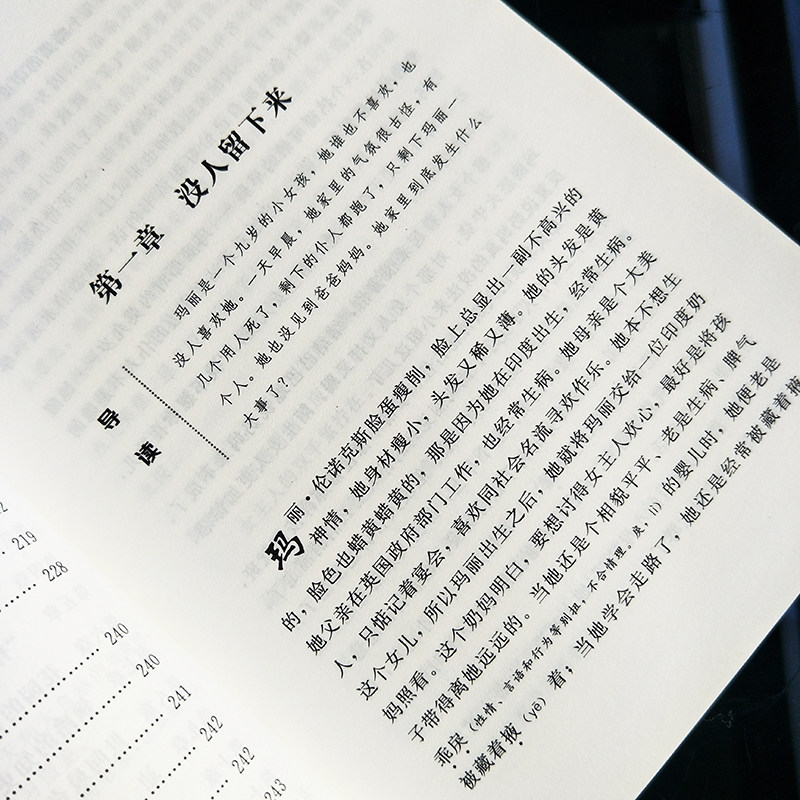 第一章 没人留下来
导读
玛丽是一个九岁的小女孩，她谁也不喜欢，也
没人喜欢她。一天早晨，她家里的气氛很古怪，有
几个用人死了，剩下的仆人都跑了，只剩下玛丽一
个人。她也没见到爸爸妈妈。她家里到底发生什么
大事了？
玛丽·伦诺克斯脸蛋瘦削，脸上总显出一副不高兴的
神情，她身材瘦小，头发又稀又薄。她的头发是黄
的，脸色也蜡黄蜡黄的，那是因为她在印度出生，经常生病。
她父亲在英国政府部门工作，也经常生病。她母亲是个大美
人，只惦记着宴会，喜欢同社会名流寻欢作乐。她本不想生
这个女儿，所以玛丽出生之后，她就将玛丽交给一位印度奶
妈照看。这个奶妈明白，要想讨得女主人欢心，最好是将孩
子带得离她远远的。当她还是个相貌平平、老是生病、脾气
乖戾（性情、言语和行为等别扭，不合情理。戾，lì）的婴儿时，她便老是
被藏着掖（yē）着；当她学会走路了，她还是经常被藏着掖
219
228
240
240
241
242
242
243